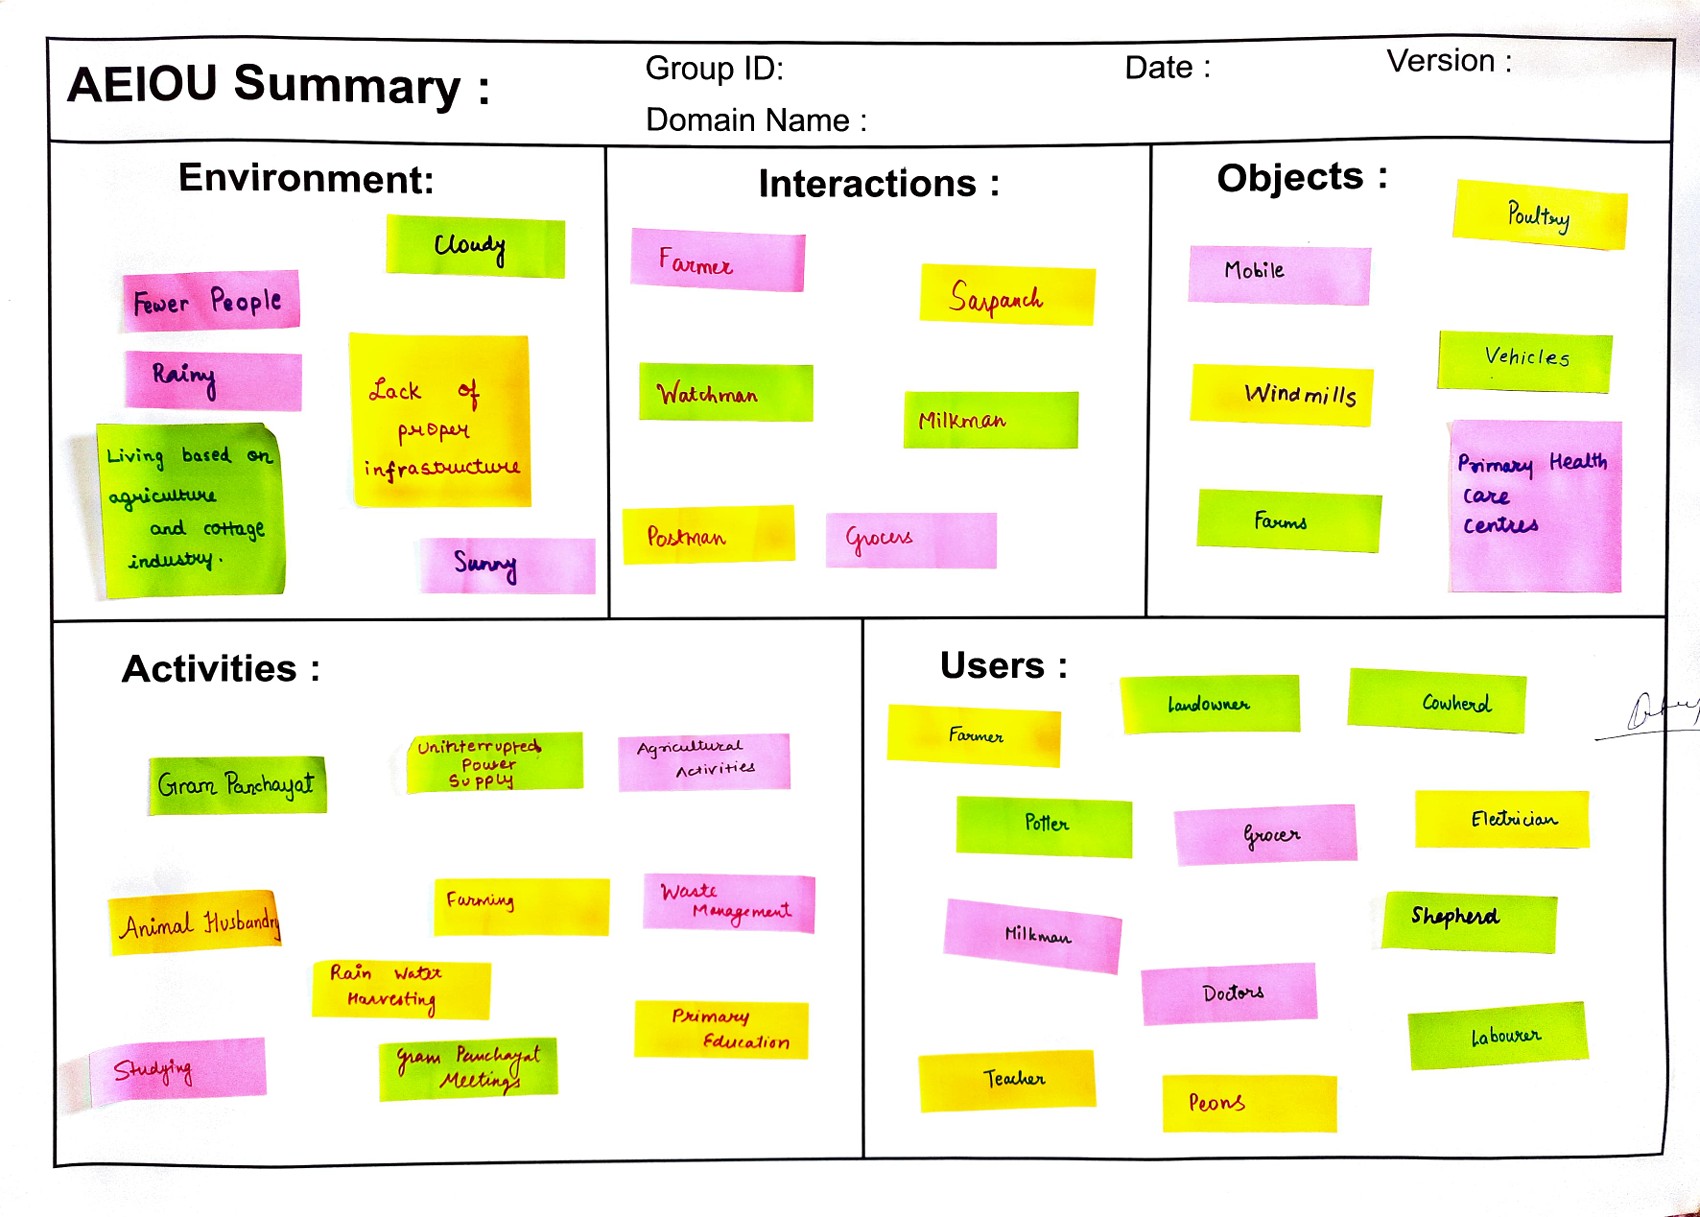 AEIOU Summary :
Group ID:
Date :
Version :
Domain Name :
Environment:
Cloudy
Fewer People
Rainy
Lack of
proper
infrastructure
Living based on
agriculture
and cottage
industry.
Sunny
Interactions :
Farmer
Sarpanch
Watchman
Milkman
Postman
Grocers
Objects :
Poultry
Mobile
Vehicles
Windmills
Primary Health
care
centres
Farms
Activities :
Gram Panchayat
Uninterrupted
Power
Supply
Agricultural
Activities
Animal Husbandry
Farming
Waste
Management
Rain Water
Harvesting
Primary
Education
Studying
Gram Panchayat
Meetings
Users :
Farmer
Landowner
Cowherd
Potter
Grocer
Electrician
Milkman
Shepherd
Doctors
Labourer
Teacher
Peons